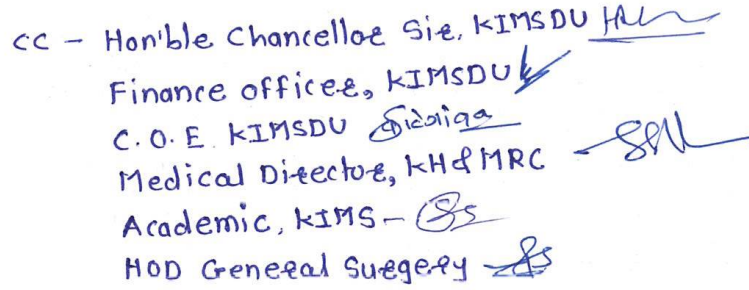 CC - Hon'ble Chancellor Sir, KIMSDU
Finance officer, KIMSDU
C.O.E. KIMSDU
Medical Director, KH&MRC
Academic, KIMS -
HOD General Surgery